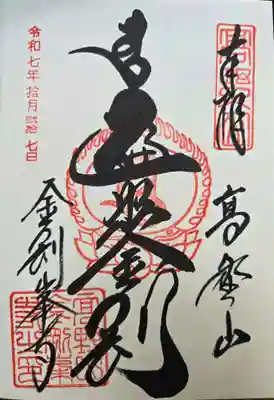 奉拝
高野山
遍照金剛
令和七年拾月弐拾七日
金剛峯寺